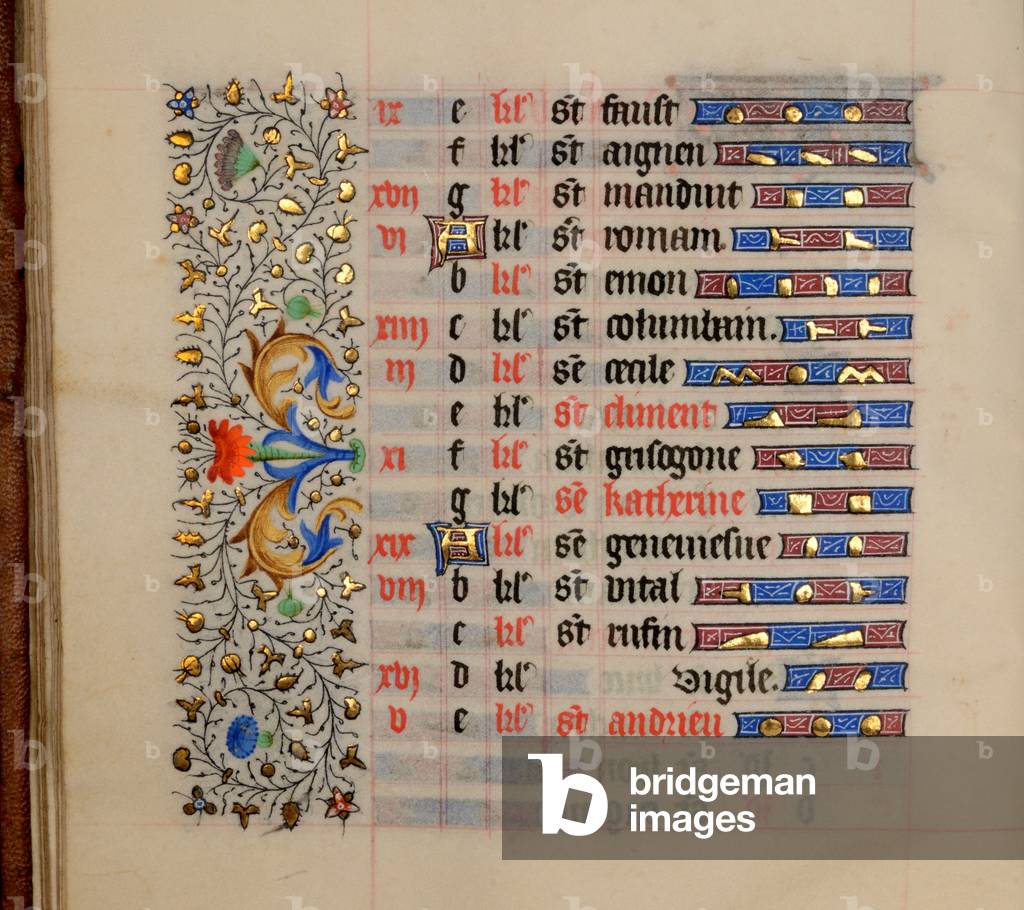 ix e kl' st faust
f kl' st aignen
xvij g kl' st manduit
vj A kl' st romam.
b kl' st emon
xiiij c kl' st columbain.
iij d kl' se cecile
e kl' st climent
xj f kl' st grisogone
g kl' se katherine
xix A kl' se geneuiesue
viij b kl' st vital
c kl' st rufin
xvj d kl' vigile.
v e kl' st andrieu
bridgeman
images